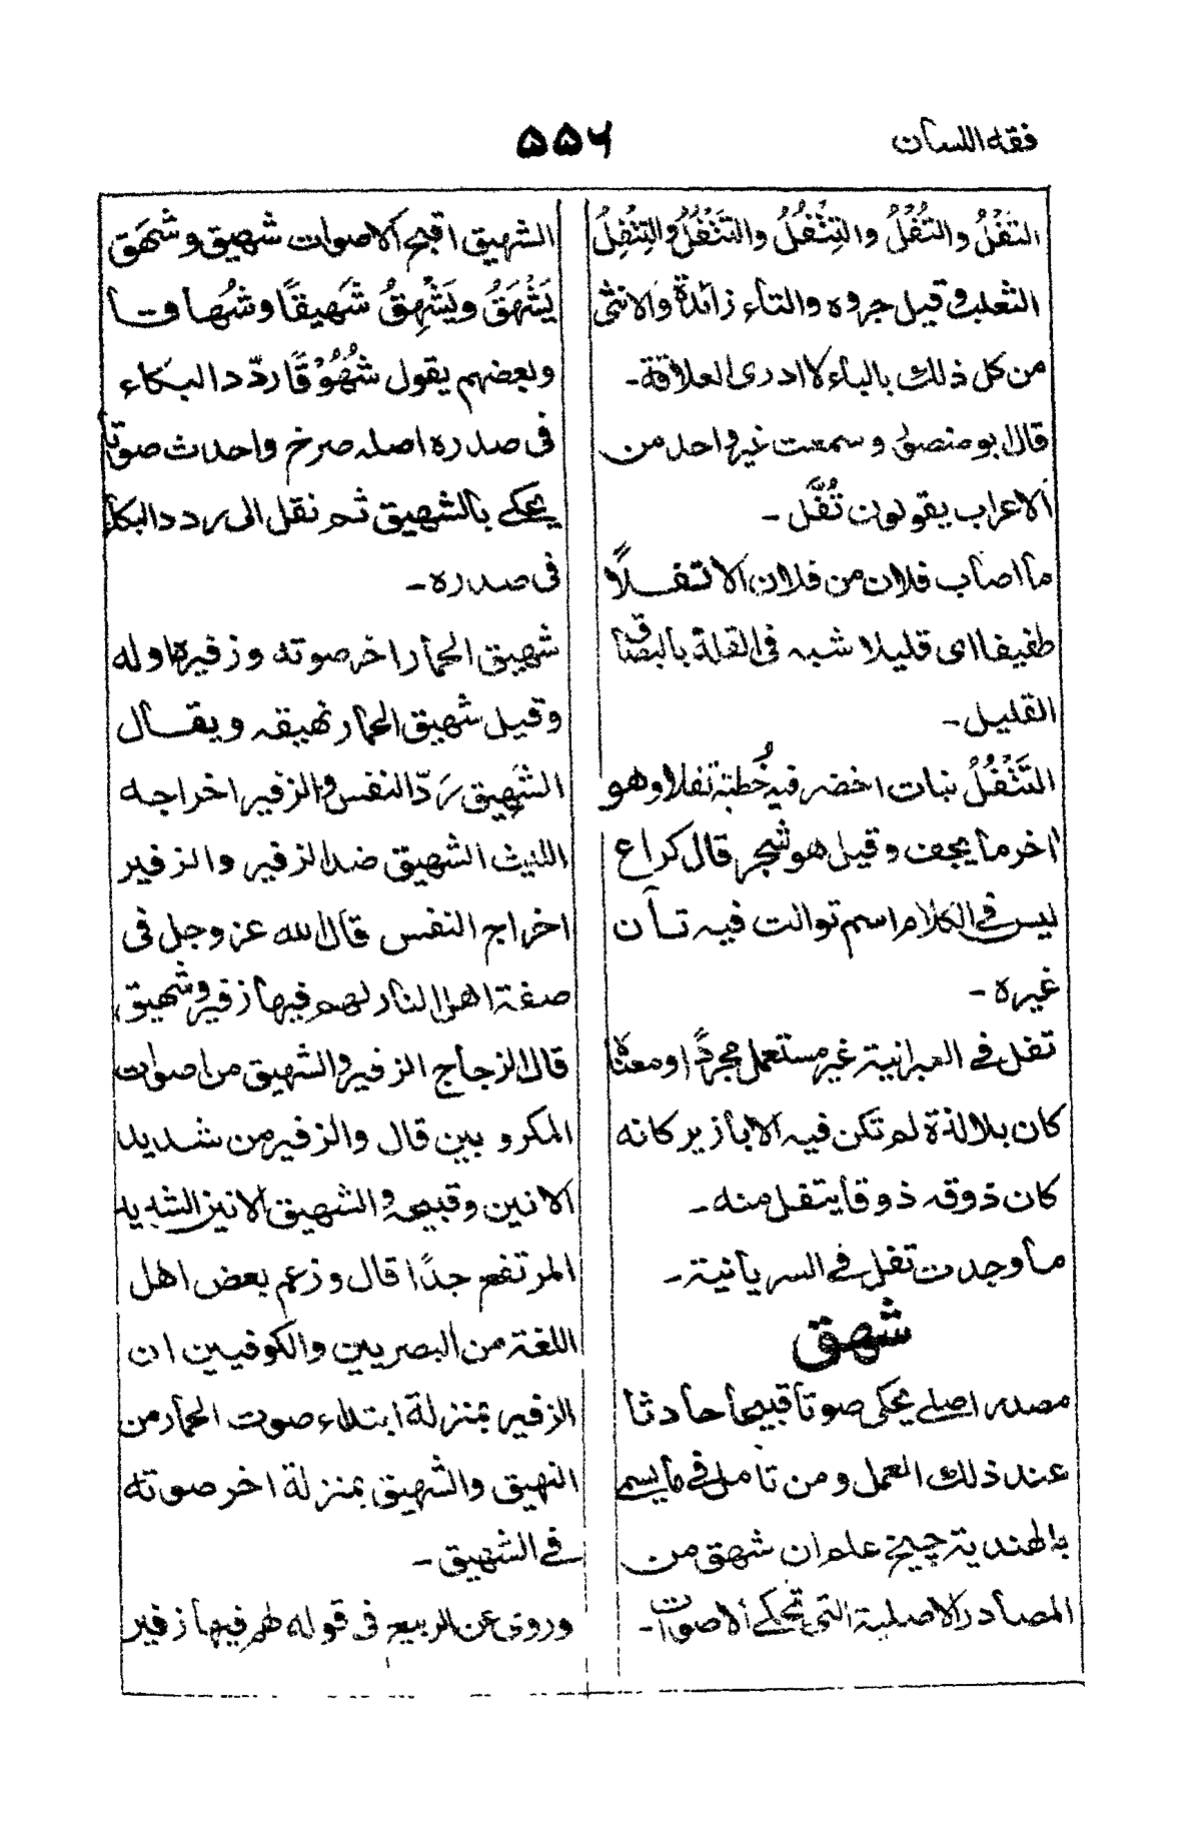 فقه اللسان
۵۵۶
التَتْفُلُ والتُتْفُلُ والتِتْفُلُ والتَتْفُلُ والتِتْفِلُ
الثعلب وقيل جروه والتاء زائدة والانثى
من كل ذلك بالهاء لا ادرى العلاقة۔
قال ابو منصور وسمعت غير واحد من
الاعراب يقولون تُفَّل۔
ما اصاب فلان من فلان الا تفلًا
طفيفا اى قليلا شبه فى القلة بالبصاق
القليل۔
التَتْفُلُ نبات اخضر فيه خُطبة تفلا وهو
اخر ما يجف وقيل هو شجر قال كراع
ليس فى الكلام اسم توالت فيه تاآن
غيره۔
تفل فى العبرانية غير مستعمل مجردًا ومعناه
كان بلا لذة لم تكن فيه الابازير كانه
كان ذوقه ذوقا يتفل منه۔
ما وجدت تفل فى السريانية۔
شهق
مصدر اصلے يحكى صوتا قبيحا حادثا
عند ذلك العمل ومن تامل فى ما يسمى
بالهندية چيخ علم ان شهق من
المصادر الاصلية التى تحكى الاصوات۔
الشهيق اقبح الاصوات شهيق وشَهَق
يَشْهَقُ ويَشْهِقُ شَهيقًا وشُهاقا
وبعضهم يقول شُهُوْقًا ردّد البكاء
فى صدره اصله صرخ واحدث صوتا
يحكى بالشهيق ثم نقل الى ردد البكاء
فى صدره۔
شهيق الحمار اخر صوته وزفيره اوله
وقيل شهيق الحمار نهيقه ويقال
الشهيق رَدّ النفس والزفير اخراجه
الليث الشهيق ضد الزفير والزفير
اخراج النفس قال الله عز وجل فى
صفة اهل النار لهم فيها زفير وشهيق
قال الزجاج الزفير والشهيق من اصوات
المكروبين قال والزفير من شديد
الانين وقبيحه والشهيق الانين الشديد
المرتفع جدًا قال وزعم بعض اهل
اللغة من البصريين والكوفيين ان
الزفير بمنزلة ابتداء صوت الحمار من
النهيق والشهيق بمنزلة اخر صوته
فى الشهيق۔
وروى عن الربيع فى قوله لهم فيها زفير